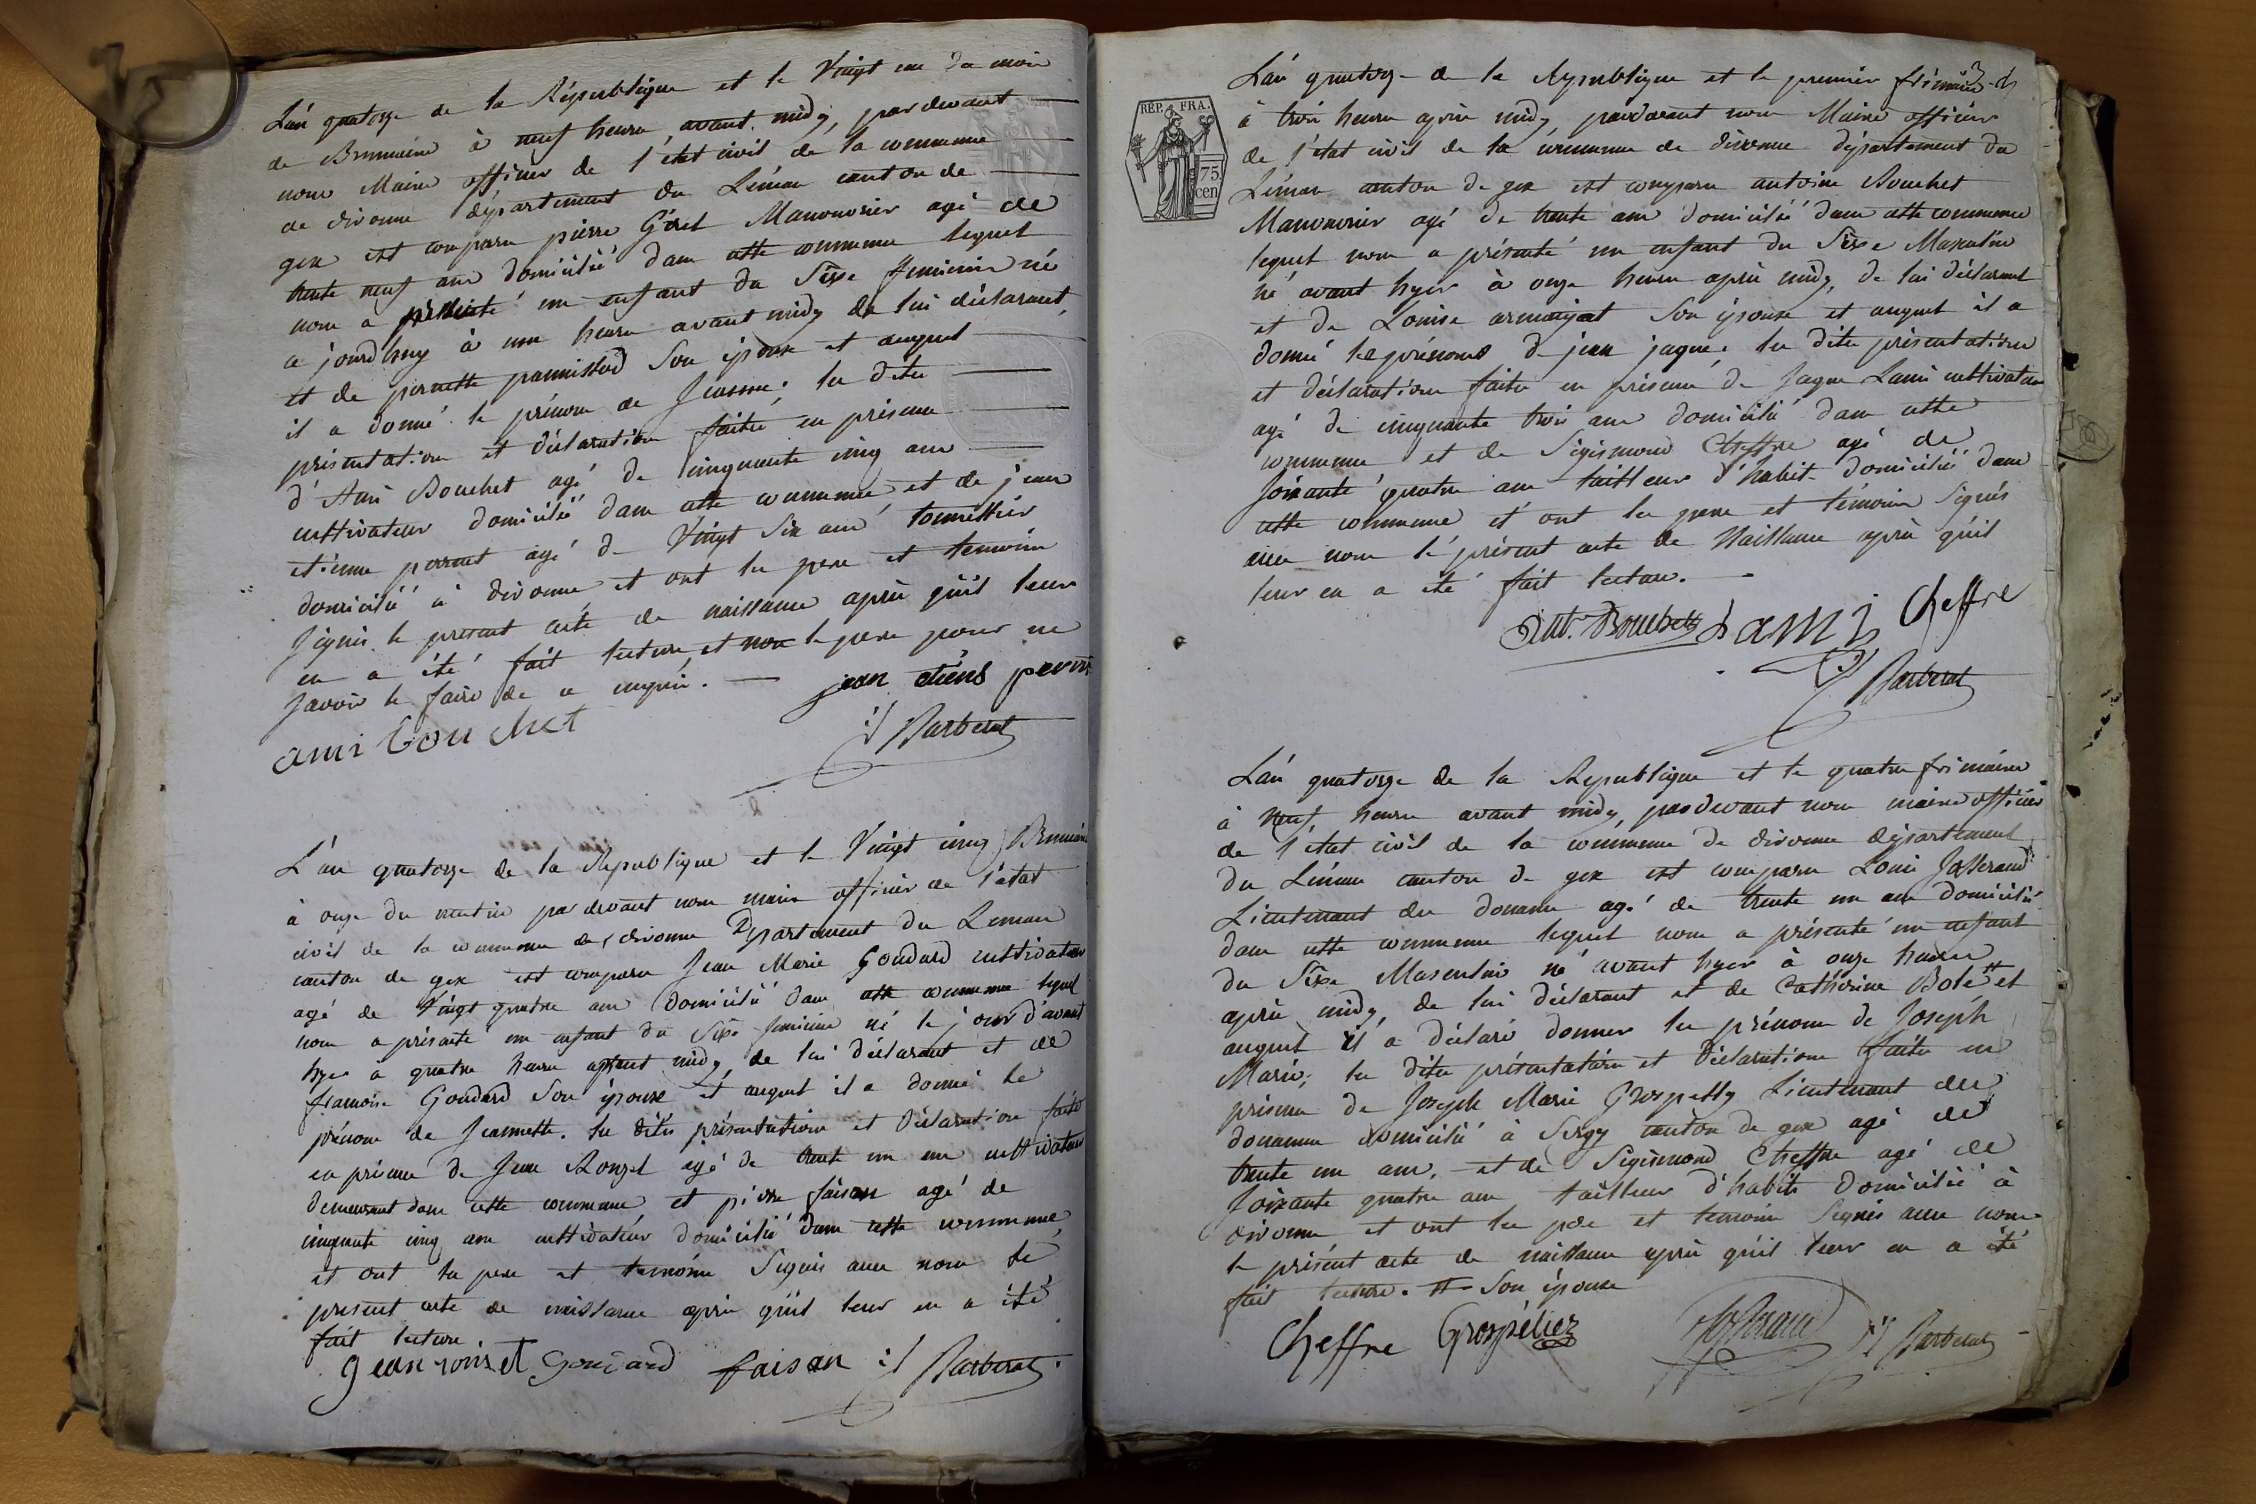 L'an quatorze de la République et le Vingt un du mois
de Brumaire à neuf heures avant midy, pardevant
nous Maire officier de l'état civil de la commune
de divonne département du Léman canton de
gex est comparu pierre Girel Manouvrier agé de
trente neuf ans domicilié dans cette commune lequel
nous a présenté un enfant du Sexe feminin né
a jourd'huy à une heure avant midy de lui déclarant
et de pernette Son épouse et auquel
il a donné le prénom de Jeanne; les dites
présentation et déclaration faites en présence
d'Ami Bouchet agé de cinquante cinq ans
cultivateur domicilié dans cette commune, et de jean
etienne perrout agé de Vingt Six ans
domicilié à divonne et ont les pere et temoins
Signés le present acte de naissance après qu'il leur
en a été fait lecture, et non le pere pour ne
Savoir le faire de ce enquis.
jean etiens
ami bouchet
Barberat
L'an quatorze de la République et le Vingt cinq Brumaire
à onze du matin par devant nous maire officier de l'état
civil de la commune de divonne Département du Leman
canton de gex est comparu Jean Marie Goudard cultivateur
agé de Vingt quatre ans domicilié dans cette commune lequel
nous a présenté un enfant du Sexe feminin né le jour d'avant
hyer à quatre heures après midy, de lui déclarant et de
francoise Goudard Son épouse et auquel il a donné le
prénom de Jeannette. les dites présentation et déclaration faites
en présence de Jean Ronzet agé de trente un ans cultivateur
demeurant dans cette commune, et pierre faisan agé de
cinquante cinq ans cultivateur domicilié dans cette commune
et ont les pere et temoins Signés avec nous le
present acte de naissance après qu'il leur en a été
fait lecture.
Jean ronzet Goudard faisan Barberat
REP. FRA.
75
cen
L'an quatorze de la République et le premier frimaire
à trois heures après midy, pardevant nous Maire officier
de l'état civil de la commune de divonne département du
Léman canton de gex est comparu antoine Bouchet
Manouvrier agé de trente ans domicilié dans cette commune
lequel nous a présenté un enfant du Sexe Masculin
né avant hyer à onze heures après midy, de lui déclarant
et de Louise armanjat Son épouse et auquel il a
donné les prénoms de jean jaques. les dites présentation
et déclaration faites en présence de Jaques Lami cultivateur
agé de cinquante trois ans domicilié dans cette
commune et de Sigismond Cheffre agé de
Soixante quatre ans tailleur d'habit domicilié dans
cette commune et ont les pere et témoins Signés
avec nous le présent acte de Naissance après qu'il
leur en a été fait lecture.
Ant. Bouchet Lami Cheffre
Barberat
L'an quatorze de la République et le quatre frimaire
à Neuf heures avant midy, pardevant nous maire officier
de l'état civil de la commune de divonne département
du Léman canton de gex est comparu Louis Josserand
Lieutenant des douanes agé de trente un ans domicilié
dans cette commune lequel nous a présenté un enfant
du Sexe Masculin né avant hyer à onze heures
après midy, de lui déclarant et de Catherine Bolé # et
auquel il a déclaré donner les prénoms de Joseph
Marie; les dites présentation et déclaration faites en
présence de Joseph Marie Lieutenant des
douanes domicilié à Sergy canton de gex agé de
trente un ans, et de Sigismond Cheffre agé de
Soixante quatre ans tailleur d'habits domicilié à
divonne et ont les pere et temoins Signés avec nous
le présent acte de naissance après qu'il leur en a été
fait lecture. # Son épouse
Cheffre Grospélier Barberat